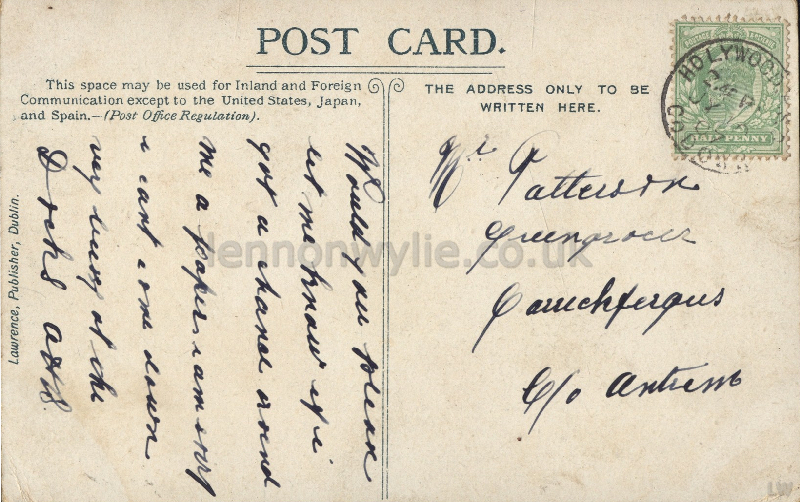 POST CARD.
This space may be used for Inland and Foreign
Communication except to the United States, Japan,
and Spain.—(Post Office Regulation).
THE ADDRESS ONLY TO BE
WRITTEN HERE.
HOLYWOOD
HALF PENNY
Mr Patterson
Greengrocer
Carrickfergus
C/o Antrim
Would you please
let me know if i
got a chance
me a paper i am sorry
i cant come down
very busy at the
Docks
Lawrence, Publisher, Dublin.
lennonwylie.co.uk
LW